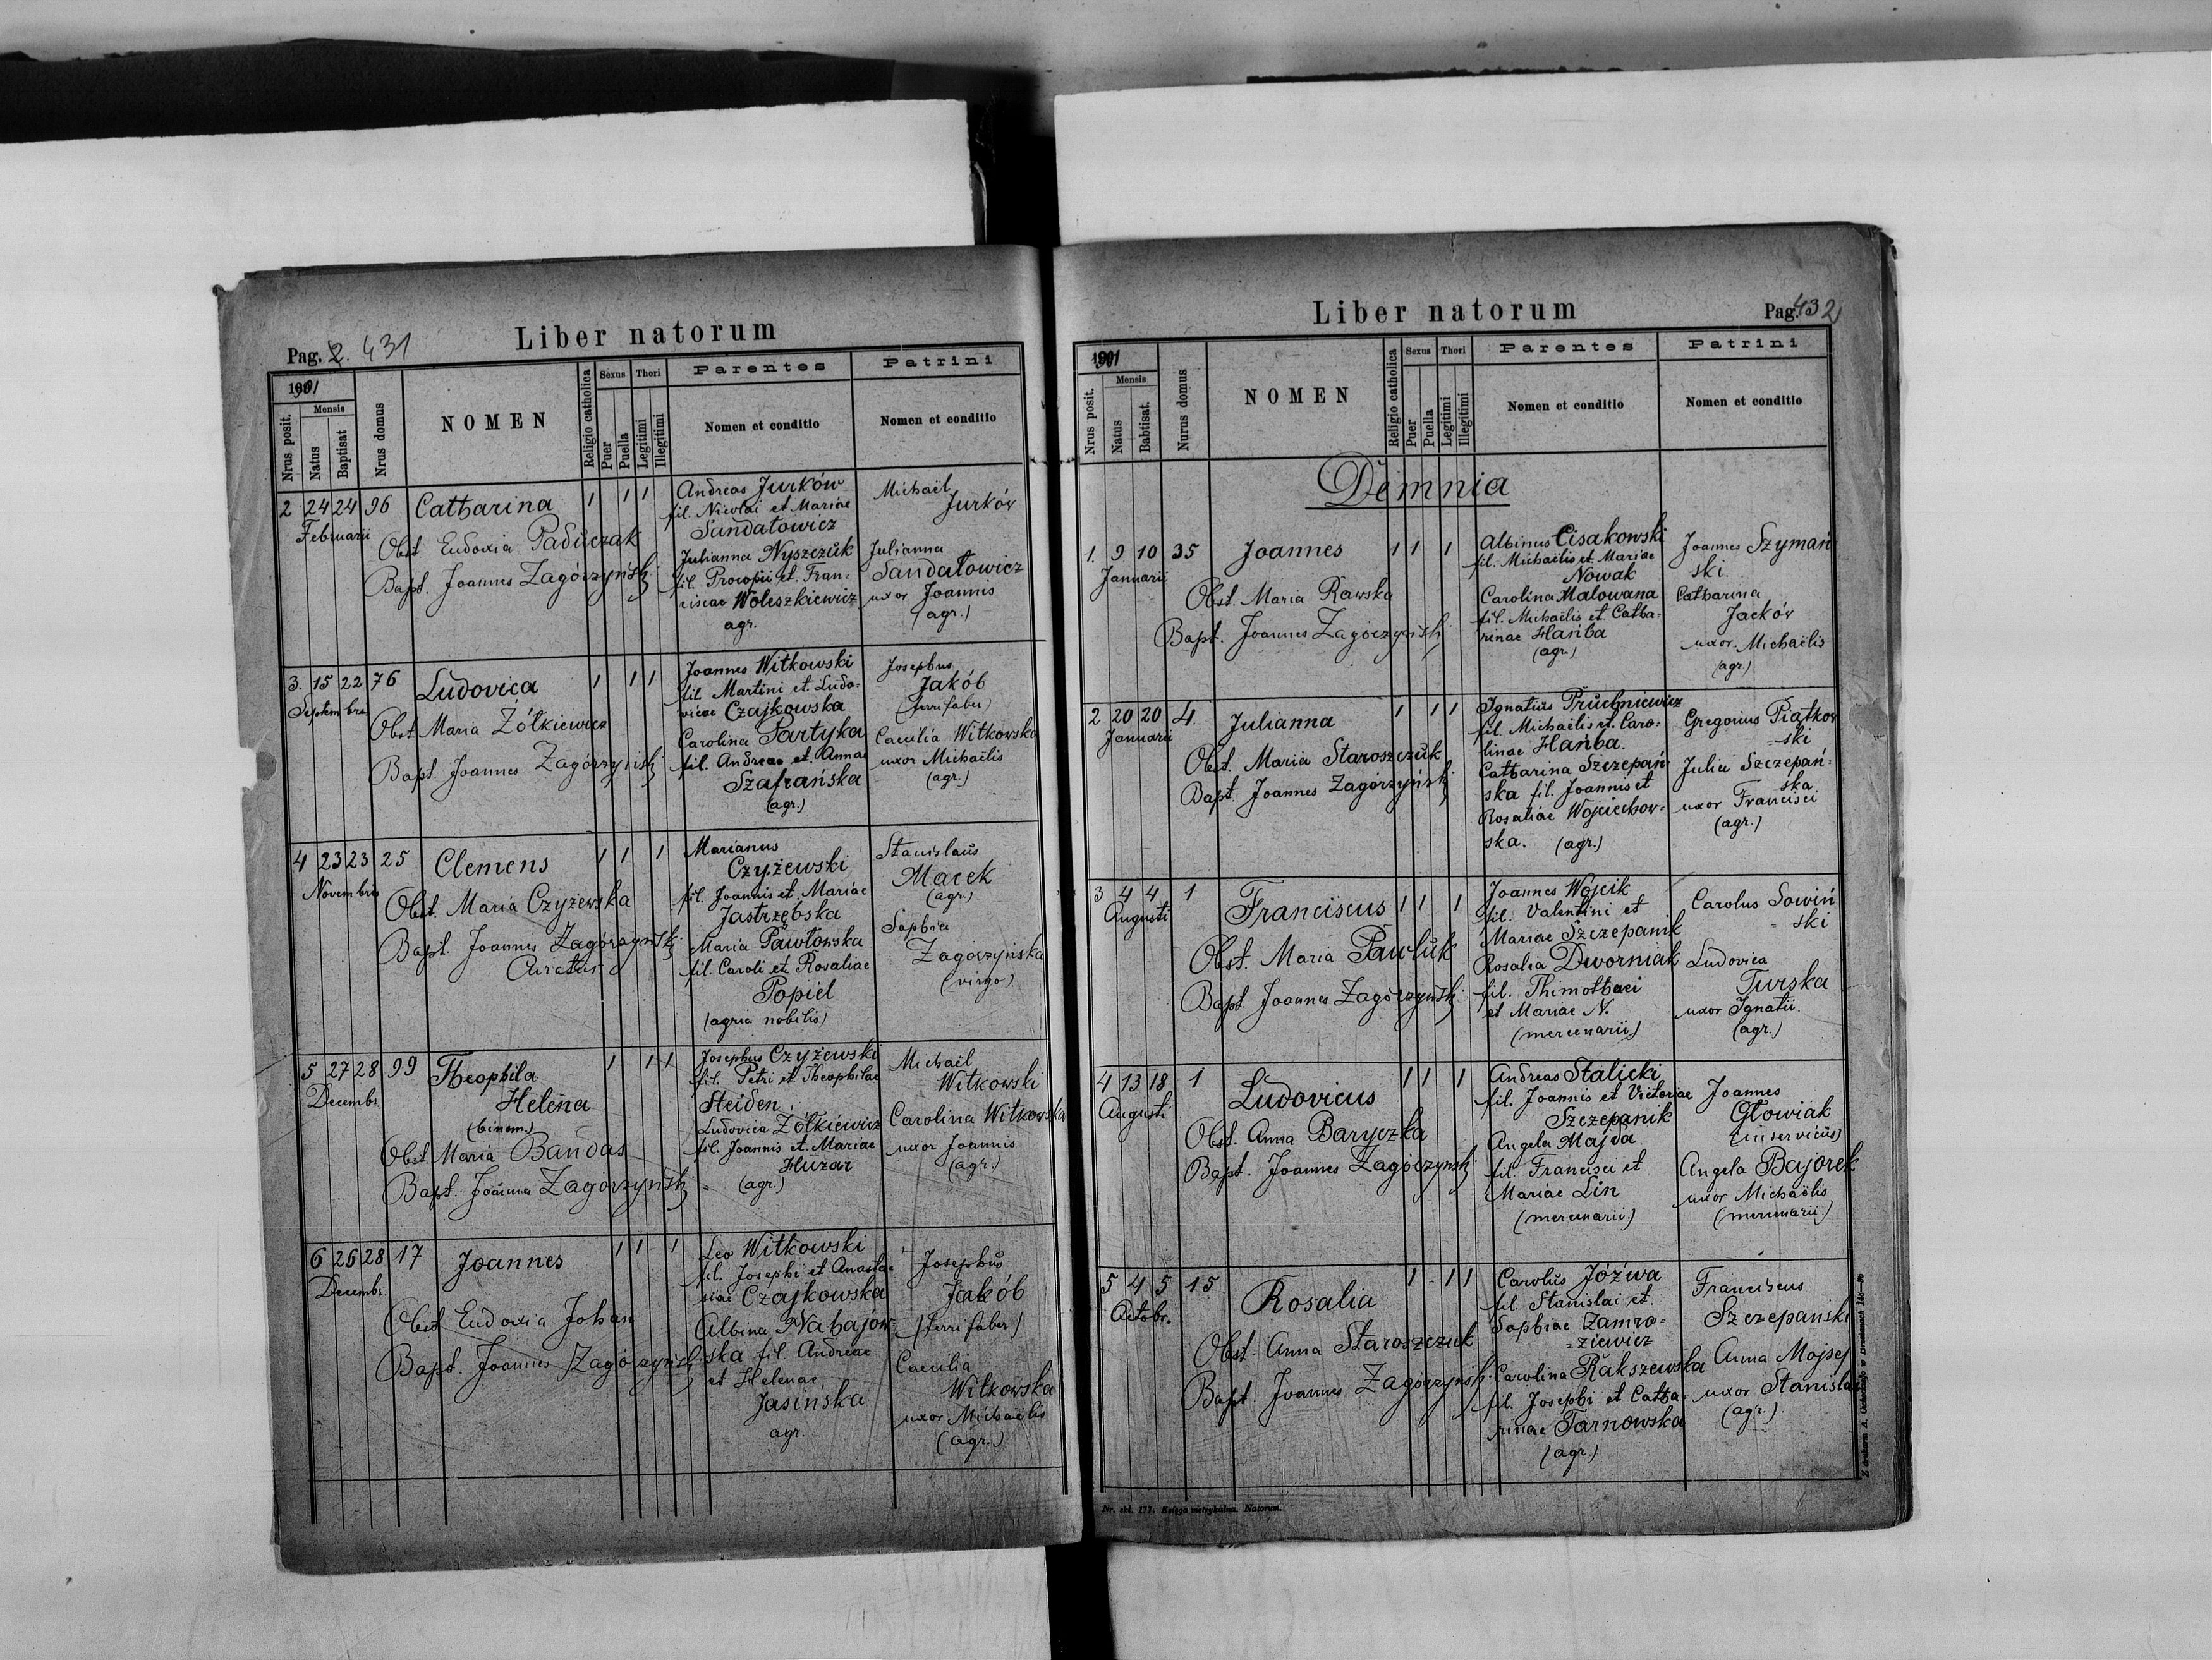 Pag. 2. 431
Liber natorum
1901
Nrus posit.
Mensis
Natus
Baptisat
Nrus domus
NOMEN
Religio catholica
Sexus
Puer
Puella
Thori
Legitimi
Illegitimi
Parentes
Nomen et conditio
Patrini
Nomen et conditio
2 24 24 96 Catharina 1 1 1
Februarii
Obst. Eudoxia Paduczak
Bapt. Joannes Zagórzyński
Andreas Jurków
fil. Nicolai et Mariae
Sandatowicz
Julianna Nyszczuk
fil. Procopii et Fran-
ciscae Woleszkiewicz
agr.
Michaël
Jurków
Julianna
Sandatowicz
uxor Joannis
(agr.)
3. 15 22 76 Ludovica 1 1 1
Septembra
Obst. Maria Żółkiewicz
Bapt. Joannes Zagórzyński
Joannes Witkowski
fil. Martini et Ludo-
vicae Czajkowska
Carolina Partyka
fil. Andreae et Annae
Szafrańska
(agr.)
Josephus
Jakób
(ferrifaber)
Caecilia Witkowska
uxor Michaëlis
(agr.)
4 23 23 25 Clemens 1 1 1
Novembris
Obst. Maria Czyżewska
Bapt. Joannes Zagórzyński
Curatus
Marianus
Czyżewski
fil. Joannis et Mariae
Jastrzębska
Maria Pawłowska
fil. Caroli et Rosaliae
Popiel
(agria nobilis)
Stanislaus
Macek
(agr.)
Sophia
Zagórzyńska
(virgo)
5 27 28 99 Theophila 1 1 1
Decembr.
Helena
(binom.)
Obst. Maria Bandas
Bapt. Joannes Zagórzyński
Josephus Czyżewski
fil. Petri et Theophilae
Steiden
Ludovica Żółkiewicz
fil. Joannis et Mariae
Huzar
(agr.)
Michaël
Witkowski
Carolina Witkowska
uxor Joannis
(agr.)
6 26 28 17 Joannes 1 1 1
Decembr.
Obst. Eudoxia Johan
Bapt. Joannes Zagórzyński
Leo Witkowski
fil. Josephi et Anasta-
siae Czajkowska
Albina Nahajow-
ska fil. Andreae
et Helenae
Jasińska
agr.
Josephus
Jakób
(ferri faber)
Caecilia
Witkowska
uxor Michaëlis
(agr.)
Liber natorum
Pag. 432
1901
Nrus posit.
Mensis
Natus
Babtisat.
Nurus domus
NOMEN
Religio catholica
Sexus
Puer
Puella
Thori
Legitimi
Illegitimi
Parentes
Nomen et conditio
Patrini
Nomen et conditio
Demnia
1. 9 10 35 Joannes 1 1 1
Januarii
Obst. Maria Rawska
Bapt. Joannes Zagórzyński
Albinus Cisakowski
fil. Michaëlis et Mariae
Nowak
Carolina Malowana
fil. Michaëlis et Catha-
rinae Hańba
(agr.)
Joannes Szymań
ski.
Catharina
Jacków
uxor Michaëlis
(agr.)
2 20 20 4. Julianna 1 1 1
Januarii
Obst. Maria Staroszczuk
Bapt. Joannes Zagórzyński
Ignatius Pruchniewicz
fil. Michaëlis et Caro-
linae Hańba.
Catharina Szczepań
ska fil. Joannis et
Rosaliae Wojciechow-
ska. (agr.)
Gregorius Piątkow
-ski
Julia Szczepań-
ska
uxor Francisci
(agr.)
3 4 4 1 Franciscus 1 1 1
Augusti
Obst. Maria Pawluk
Bapt. Joannes Zagórzyński
Joannes Wójcik
fil. Valentini et
Mariae Szczepanik
Rosalia Dworniak
fil. Thimothaei
et Mariae N.
(mercenarii)
Carolus Sowiń
- ski
Ludovica
Turska
uxor Ignatii.
(agr.)
4 13 18 1 Ludovicus 1 1 1
Augusti
Obst. Anna Baryczka
Bapt. Joannes Zagórzyński
Andreas Stalicki
fil. Joannis et Victoriae
Szczepanik
Angela Majda
fil. Francisci et
Mariae Lin
(mercenarii)
Joannes
Głowiak
(inservicus)
Angela Bajorek
uxor Michaëlis
(mercenarii)
5 4 5 15 Rosalia 1 1 1
Octobr.
Obst. Anna Staroszczuk
Bapt. Joannes Zagórzyński
Carolus Józwa
fil. Stanislai et
Sophiae Zamro-
=ziewicz
Carolina Rakszewska
fil. Josephi et Catha-
rinae Tarnowska
(agr.)
Franciscus
Szczepański
Anna Mojsej
uxor Stanislai
(agr.)
Nr. skł. 177. Księga metrykalna. Natorum.